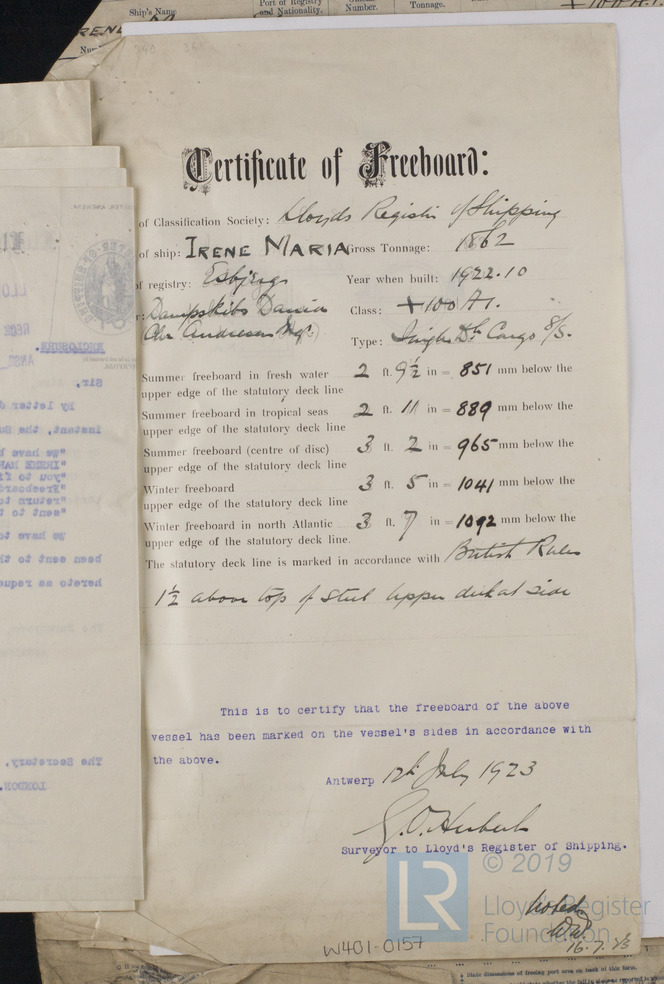 Ship's Name
Port of Registry
and Nationality.
Number.
Tonnage.
Certificate of Freeboard:
of Classification Society: Lloyds Register of Shipping
of ship: IRENE MARIA Gross Tonnage: 1862
registry: Esbjerg Year when built: 1922.10
Dampskibs Dania Class: +100 A1.
Chr Andresen Mgr.) Type: Single Dk Cargo S/S.
Summer freeboard in fresh water 2 ft. 9½ in = 851 mm below the
upper edge of the statutory deck line
Summer freeboard in tropical seas 2 ft. 11 in = 889 mm below the
upper edge of the statutory deck line
Summer freeboard (centre of disc) 3 ft. 2 in = 965 mm below the
upper edge of the statutory deck line
Winter freeboard 3 ft. 5 in = 1041 mm below the
upper edge of the statutory deck line
Winter freeboard in north Atlantic 3 ft. 7 in = 1092 mm below the
upper edge of the statutory deck line.
The statutory deck line is marked in accordance with British Rules
1½ above top of steel upper deck at side
This is to certify that the freeboard of the above
vessel has been marked on the vessel's sides in accordance with
the above.
Antwerp 12th July 1923
G.O. Herbert
Surveyor to Lloyd's Register of Shipping.
LR © 2019
Lloyd's Register
Foundation
Noted
16.7.23
W401-0157
ENCLOSURE.
Sir,
By letter
instant, the
"we have
"IRENE MA
"you to fi
"Freeboard
"return to
"sent to t
We have to
been sent to th
hereto as reque
The Secretary,
LONDON.